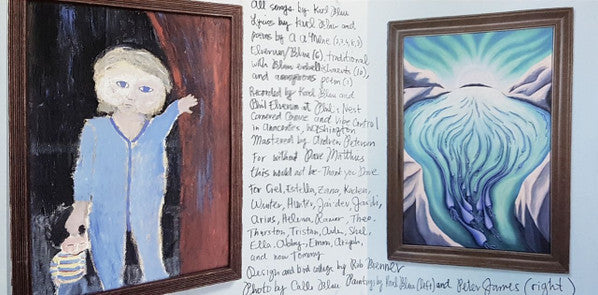 All songs by Karl Blau
Lyrics by Karl Blau and
poems by A A Milne (2,3,4,8,9)
Elverum/Blau (6), traditional
with Blau embellishments (10),
and anonymous poem (1)
Recorded by Karl Blau and
Phil Elverum at Phil's Nest
Cornered Canoe and Vibe Control
in Anacortes, Washington
Mastered by Andrew Peterson
For without Dave Matthies
this would not be - Thank you Dave
For Ciel, Estella, Zana,
Wunter, Hunter, Jai-dev, Jaida,
Arias, Helena, Theo,
Thurston, Tristan, Auden, Shel,
Ella, Emma,
and now Tommy.
Design and book collage by Rob Brenner
Photo by Calle Blau Paintings by Karl Blau (left) and Peter James (right)